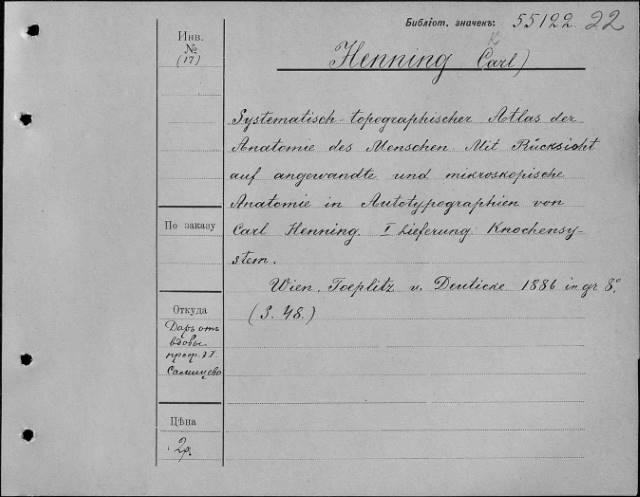 Библіот. значекъ: 55122 22
Инв.
№
(17)
Henning (Carl)
Systematisch-topographischer Atlas der
Anatomie des Menschen. Mit Rücksicht
auf angewandte und mikroskopische
Anatomie in Autotypographien von
Carl Henning. I Lieferung. Knochensy-
stem.
Wien. Toeplitz u. Deuticke 1886 in gr 8º
(3. 48.)
По заказу
Откуда
Даръ отъ
вдовы
проф.
Цѣна
2р.